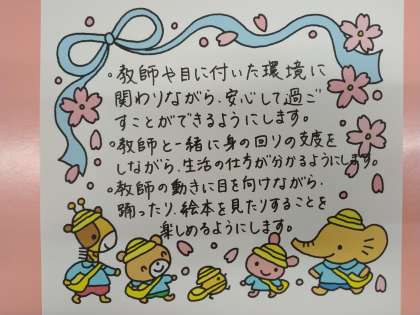 ○教師や目に付いた環境に
関わりながら、安心して過ご
すことができるようにします。
○教師と一緒に身の回りの支度を
しながら、生活の仕方が分かるようにします。
○教師の動きに目を向けながら、
踊ったり、絵本を見たりすることを
楽しめるようにします。